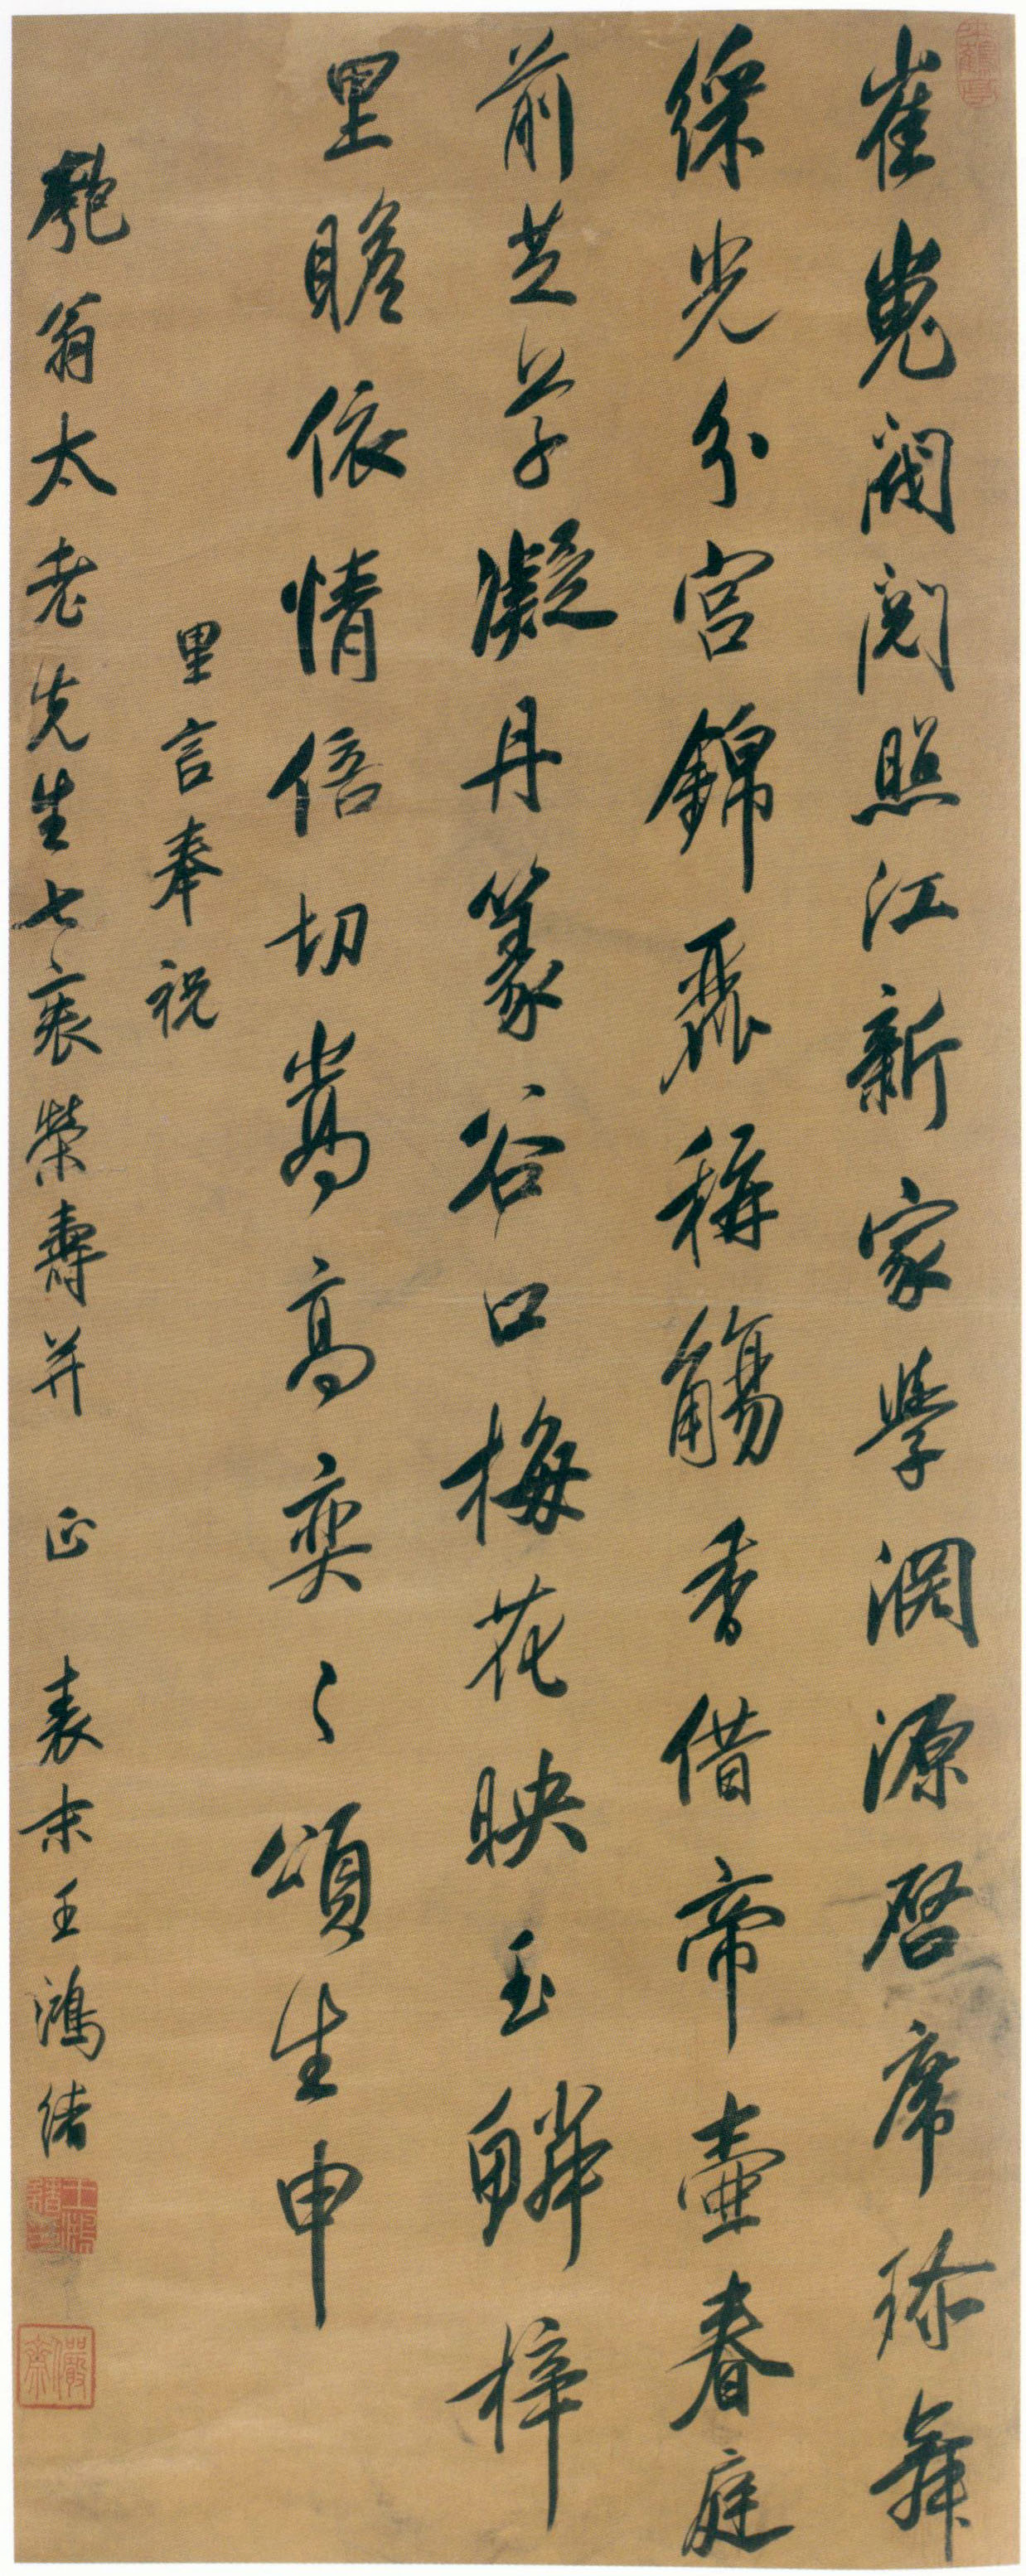 崔嵬閥閱照江新家學淵源啓席珍舞
綵光分宮錦麗稱觴香借帝壺春庭
前芝草凝丹篆谷口梅花映玉鱗梓
里瞻依情倍切嵩高奕〻頌生申
里言奉祝
匏翁太老先生七袠榮壽并 正 表末王鴻緒